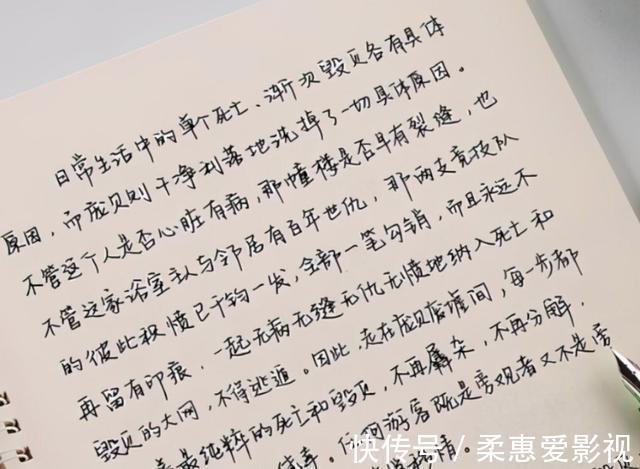 日常生活中的单个死亡、渐次毁灭各有具体
原因，而庞贝则干净利落地洗掉了一切具体原因。
不管这个人是否心脏有病，那幢楼是否早有裂缝，也
不管这家浴室主人与邻居有百年世仇，那两支竞技队
的彼此积愤已千钧一发，全部一笔勾销，而且永远不
再留有印痕，一起无病无缝无仇无愤地纳入死亡和
毁灭的大网，不得逃遁。因此，走在庞贝废墟间，每一步都
最纯粹的死亡和毁灭，不再羼杂，不再分解，
游客既是旁观者又不是旁
快传号／柔惠爱影视